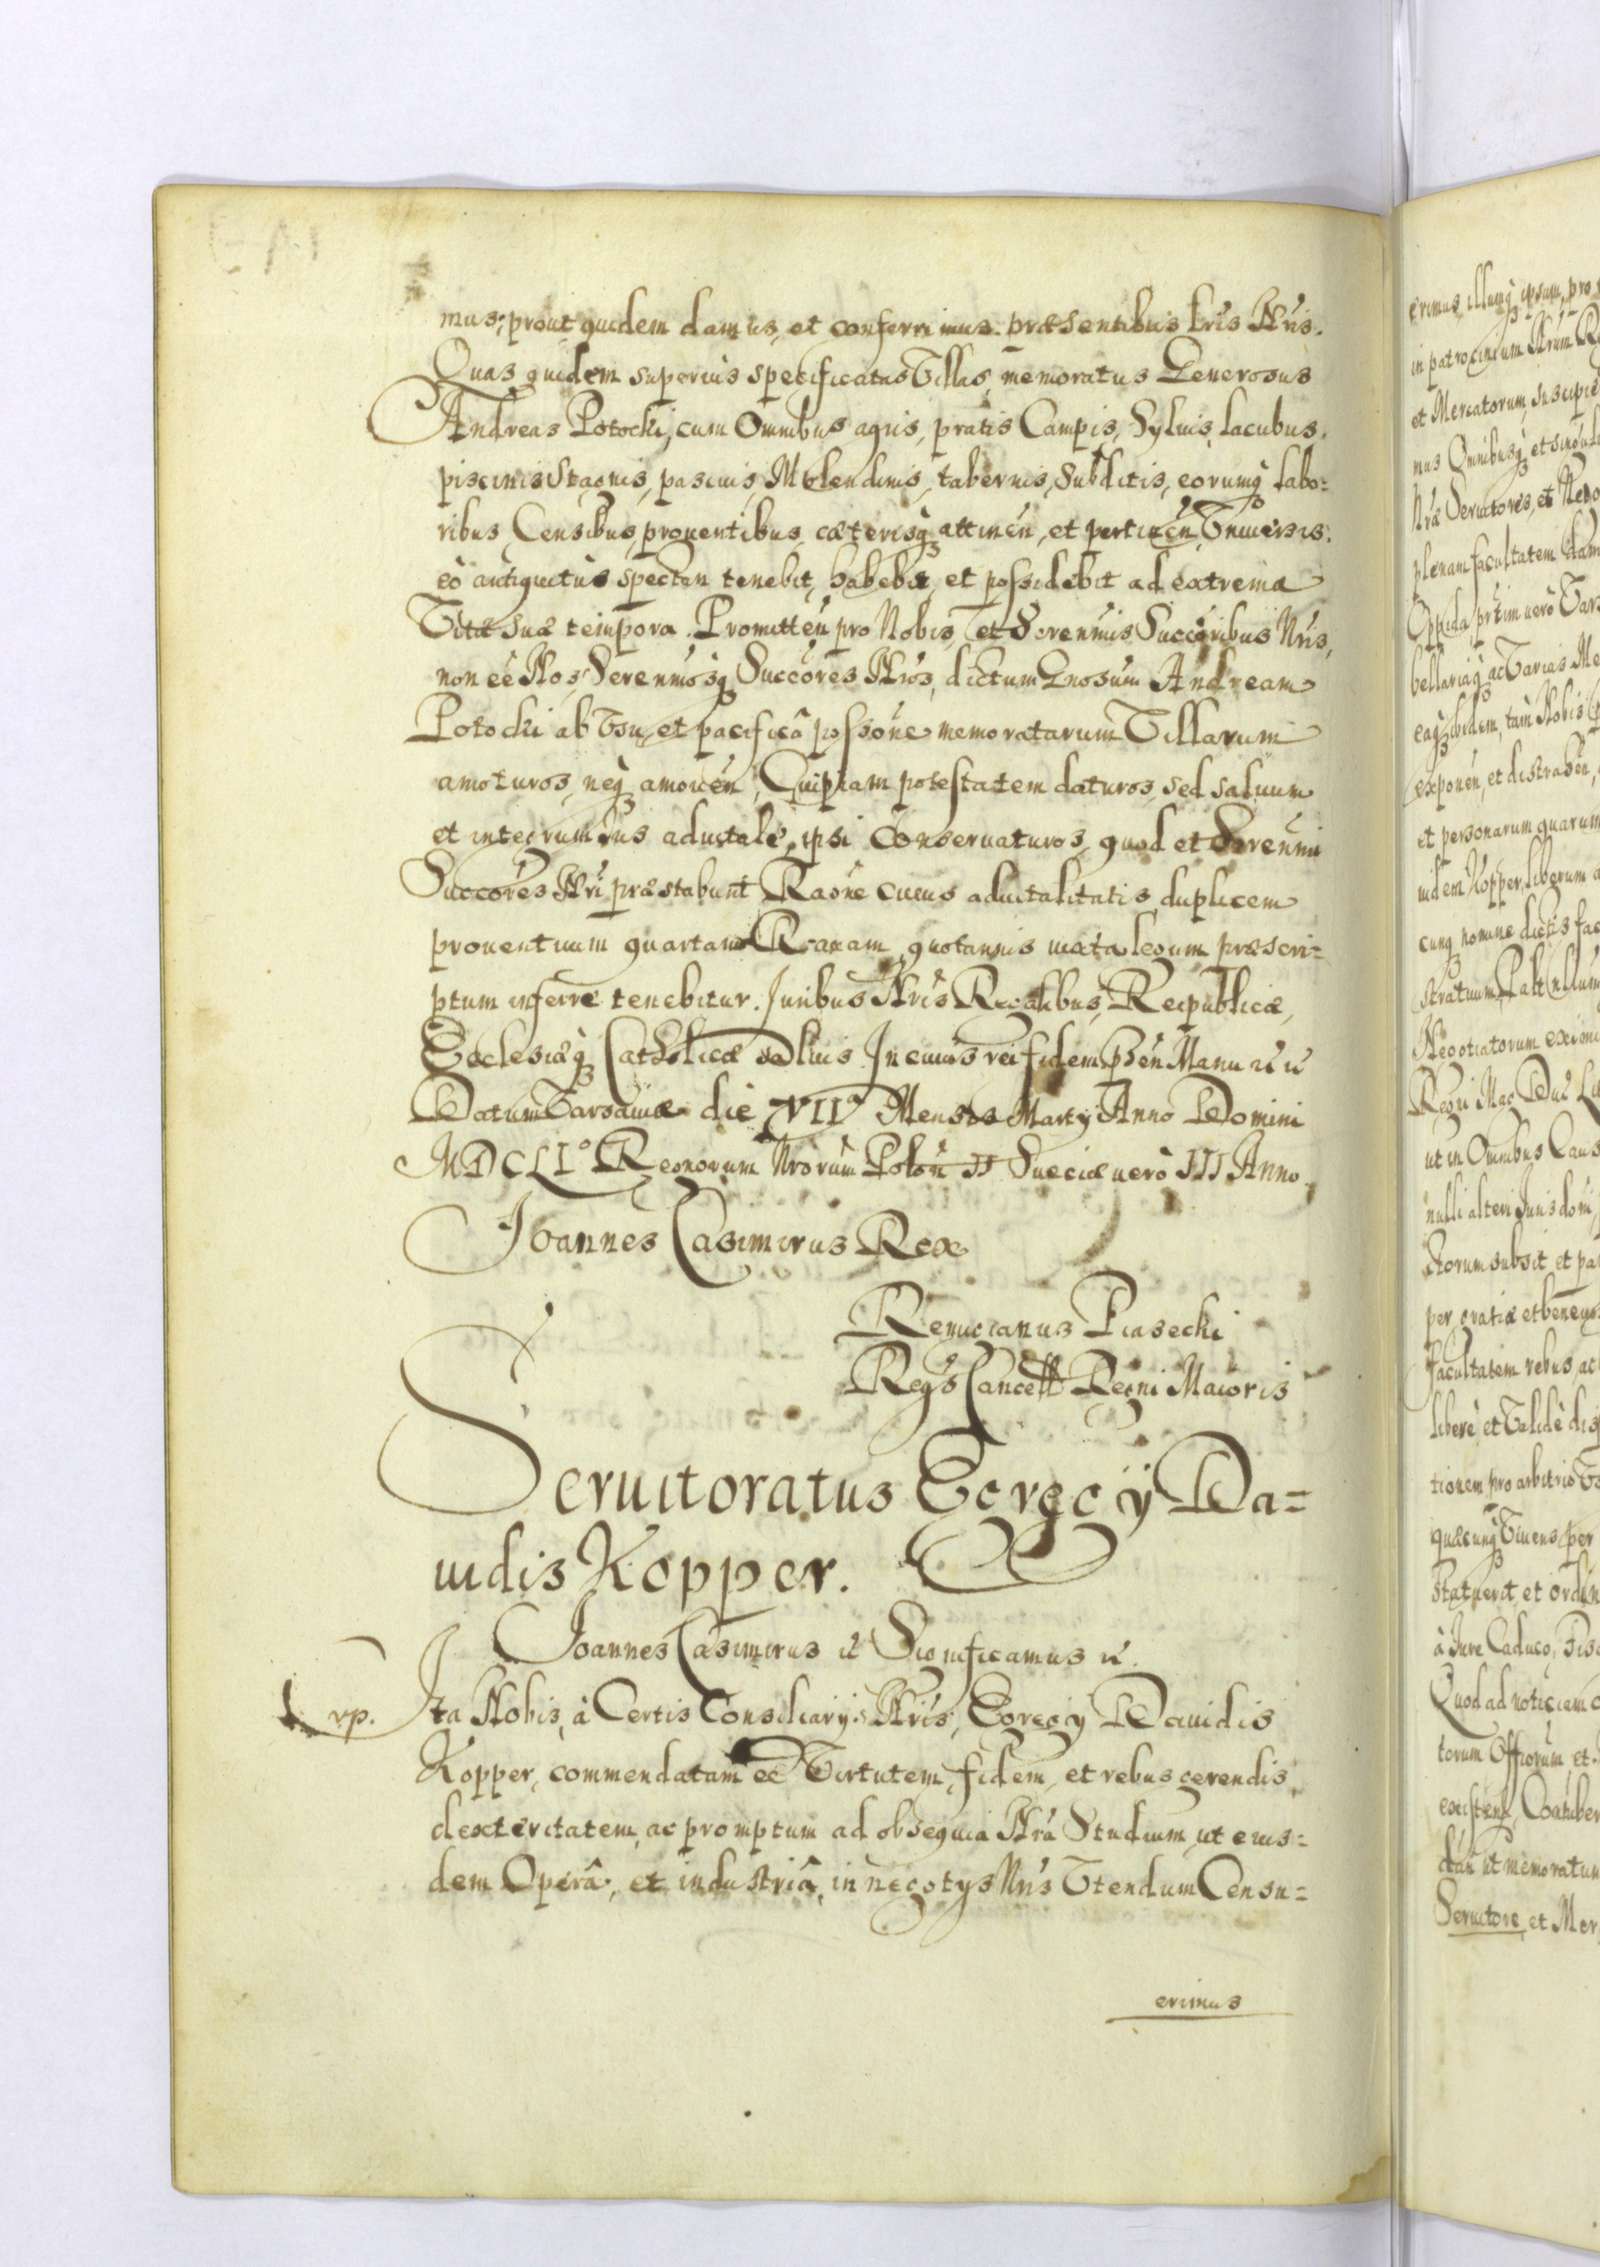 mus, prout quidem damus, et conferrimus præsentibus Lris Nris.
Quas quidem superius specificatas Villas memoratus Generosus
Andreas Potocki, cum Omnibus agris, pratis Campis, Syluis, lacubus,
piscinis Stagnis, pascuis, Molendinis, tabernis, Subditis, eorumq labo=
ribus Censibus, prouentibus, cæterisq attinen, et pertinen Vniuersis.
eò antiquitùs spectan tenebit, habebit, et possidebit ad extrema
Vitæ suæ tempora. Promitten pro Nobis, et Serenmis Succoribus Nris,
non eé Nos, Serenmosq Succores Nros, dictum Gnosum Andream
Potocki ab Vsu, et pacificâ possone memoratarum Villarum
amoturos, neq amouen, Cuipiam potestatem daturos, sed saluum
et integrum Ius aduitale, ipsi Conseruaturos, quod et Serenmi
Succores Nri præstabunt Raone cuius aduitalitatis duplicem
prouentuum quartam Rawam quotannis iuxta legum præscri=
ptum inferre tenebitur. Iuribus Nris Regalibus, Reipublicæ,
Ecclesiæq Catholicæ Saluis. In cuius rei fidem pñsen Manu
Datum Varsauiæ die XVIIª Mensis Marty Anno Domini
MDCLI° Regnorum Nrorum Polon II Sueciæ uerò III Anno
Ioannes Casimirus Rex
Remigianus Piasecki
Regns Cancell Regni Maioris
Seruitoratus Egregy Da=
uidis Kopper.
Ioannes Casimirus Significamus
rp. Ita Nobis, à Certis Consiliarys Nris, Egregy Dauidis
Kopper, commendatam eé Virtutem, fidem, et rebus gerendis
dexteritatem, ac promptum ad obsequia Nra Studium, ut eius=
dem Operâ, et industriâ, in negotys Nris Vtendum Censu=
erimus
erimus illumq ipsum, pro
in patrocinium Nrum
et Mercatorum, suscipie
mus Omnibusq et singul
Nræ Seruitores, et Nego
plenam facultatem dam
Oppida, prtim uerò Vars
bellariaq ac Varias Me
eaq ibidem, tam Nobis
exponen, et distrahen,
et personarum quarum
idem Kopper, liberum a
cunq nomine dictis fac
stratuum
Negotiatorum eximi
Regni Mag Duc
ut in Omnibus Caus
nulli alteri Iurisdoni,
Norum subsit, et pa
per gratiæ et beneuo
facultatem rebus, ac
liberè et Validè dis
tionem pro arbitrio
quæcunq Viuens, per
Statuerit, et ordin
à Iure Caduco, Fisc
Quod ad notitiam
torum Offiorum, et
existen,
dan ut memoratum
Seruitore, et Mer